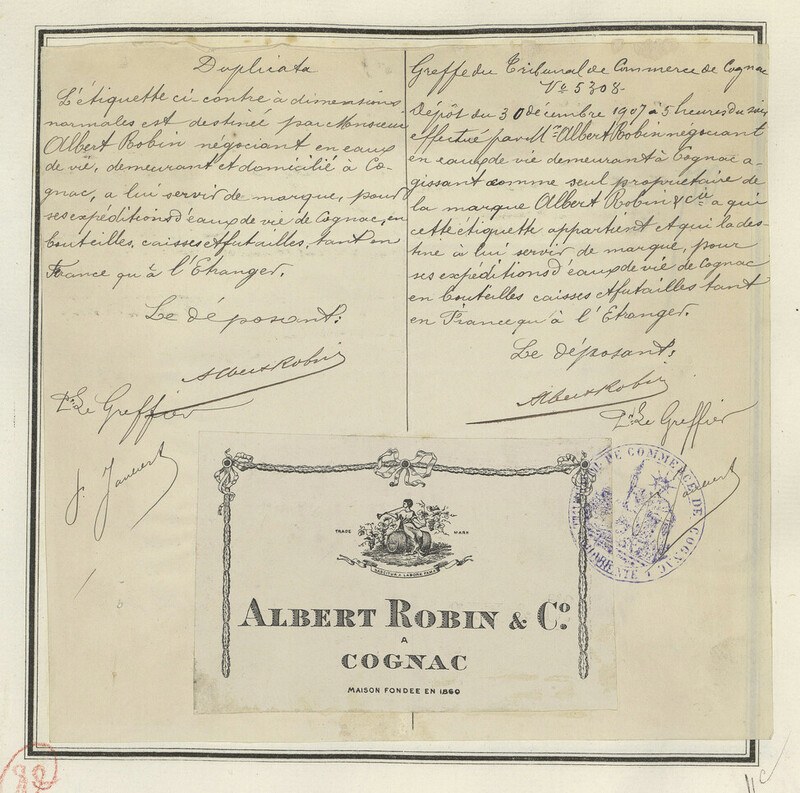 Duplicata
L'étiquette ci-contre à dimensions
normales est destinée par Monsieur
Albert Robin négociant en eaux
de vie, demeurant et domicilié à Co-
gnac, a lui servir de marque, pour
ses expéditions d'eaux de vie de Cognac, en
bouteilles, caisses et futailles, tant en
France qu'à l'Etranger.
Le déposant:
Albert Robin
Pr. Le Greffier
Greffe du Tribunal de Commerce de Cognac
No 5308.
Dépôt du 30 décembre 1907 à 5 heures du soir
effectué par Mr Albert Robin négociant
en eaux de vie demeurant à Cognac a-
gissant comme seul propriétaire de
la marque Albert Robin & Cie a qui
cette étiquette appartient et qui la des-
tine à lui servir de marque, pour
ses expéditions d'eaux de vie de Cognac
en bouteilles caisses et futailles tant
en France qu'à l'Etranger.
Le déposant:
Albert Robin
Pr. Le Greffier
TRADE MARK
ALBERT ROBIN & Co.
A
COGNAC
MAISON FONDEE EN 1860
DE COMMERCE DE COGNAC
CHARENTE